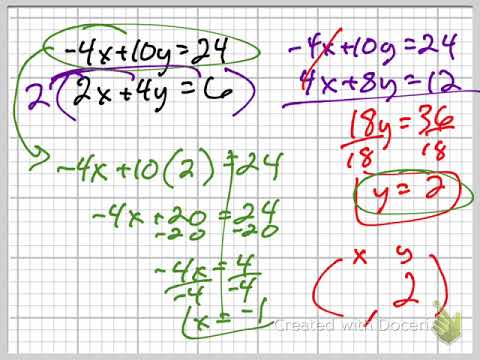 -4x+10y=24
2(2x+4y=6)
-4x+10y=24
4x+8y=12
18y=36
18 18
y=2
-4x+10(2)=24
-4x+20=24
-20 -20
-4x=4
-4 -4
x=-1
x y
( , 2)
Created with Doceri